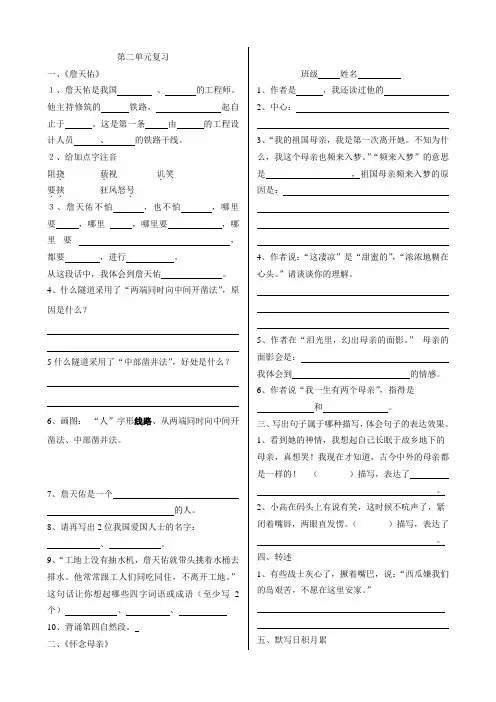 第二单元复习
一、《詹天佑》
１、詹天佑是我国 、 的工程师。
他主持修筑的 铁路， 起自
止于 。这是第一条 由 的工程设
计人员 、 的铁路干线。
２、给加点字注音
阻挠 藐视 讥笑
要挟 狂风怒号
３、詹天佑不怕 ，也不怕 ，哪里
要 ，哪里 ，哪里要 ，哪
里要 ，
都要 ，进行 。
从这段话中，我体会到詹天佑 。
4、什么隧道采用了“两端同时向中间开凿法”，原
因是什么？
5什么隧道采用了“中部凿井法”，好处是什么？
6、画图： “人”字形线路、从两端同时向中间开
凿法、中部凿井法。
7、詹天佑是一个
的人。
8、请再写出2位我国爱国人士的名字：
、 。
9、“工地上没有抽水机，詹天佑就带头挑着水桶去
排水。他常常跟工人们同吃同住，不离开工地。”
这句话让你想起哪些四字词语或成语（至少写2
个） 、 、
10、背诵第四自然段。
二、《怀念母亲》
班级 姓名
1、作者是 ，我还读过他的
2、中心：
3、“我的祖国母亲，我是第一次离开她。不知为什
么，我这个母亲也频来入梦。”“频来入梦”的意思
是 。祖国母亲频来入梦的原
因是：
4、作者说：“这凄凉”是“甜蜜的”，“浓浓地糊在
心头。”请谈谈你的理解。
5、作者在“泪光里，幻出母亲的面影。” 母亲的
面影会是：
我体会到 的情感。
6、作者说“我一生有两个母亲”，指得是
和 。
三、写出句子属于哪种描写，体会句子的表达效果。
1、看到她的神情，我想起自己长眠于故乡地下的
母亲，真想哭！我现在才知道，古今中外的母亲都
是一样的！ （ ）描写，表达了
。
2、小高在码头上有说有笑，这时候不吭声了，紧
闭着嘴唇，两眼直发愣。（ ）描写，表达了
。
四、转述
1、有些战士灰心了，撅着嘴巴，说：“西瓜嫌我们
的岛艰苦，不愿在这里安家。”
五、默写日积月累